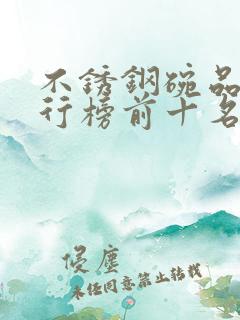 不銹鋼碗品
行榜前十名
侵塵
未经同意禁止转载